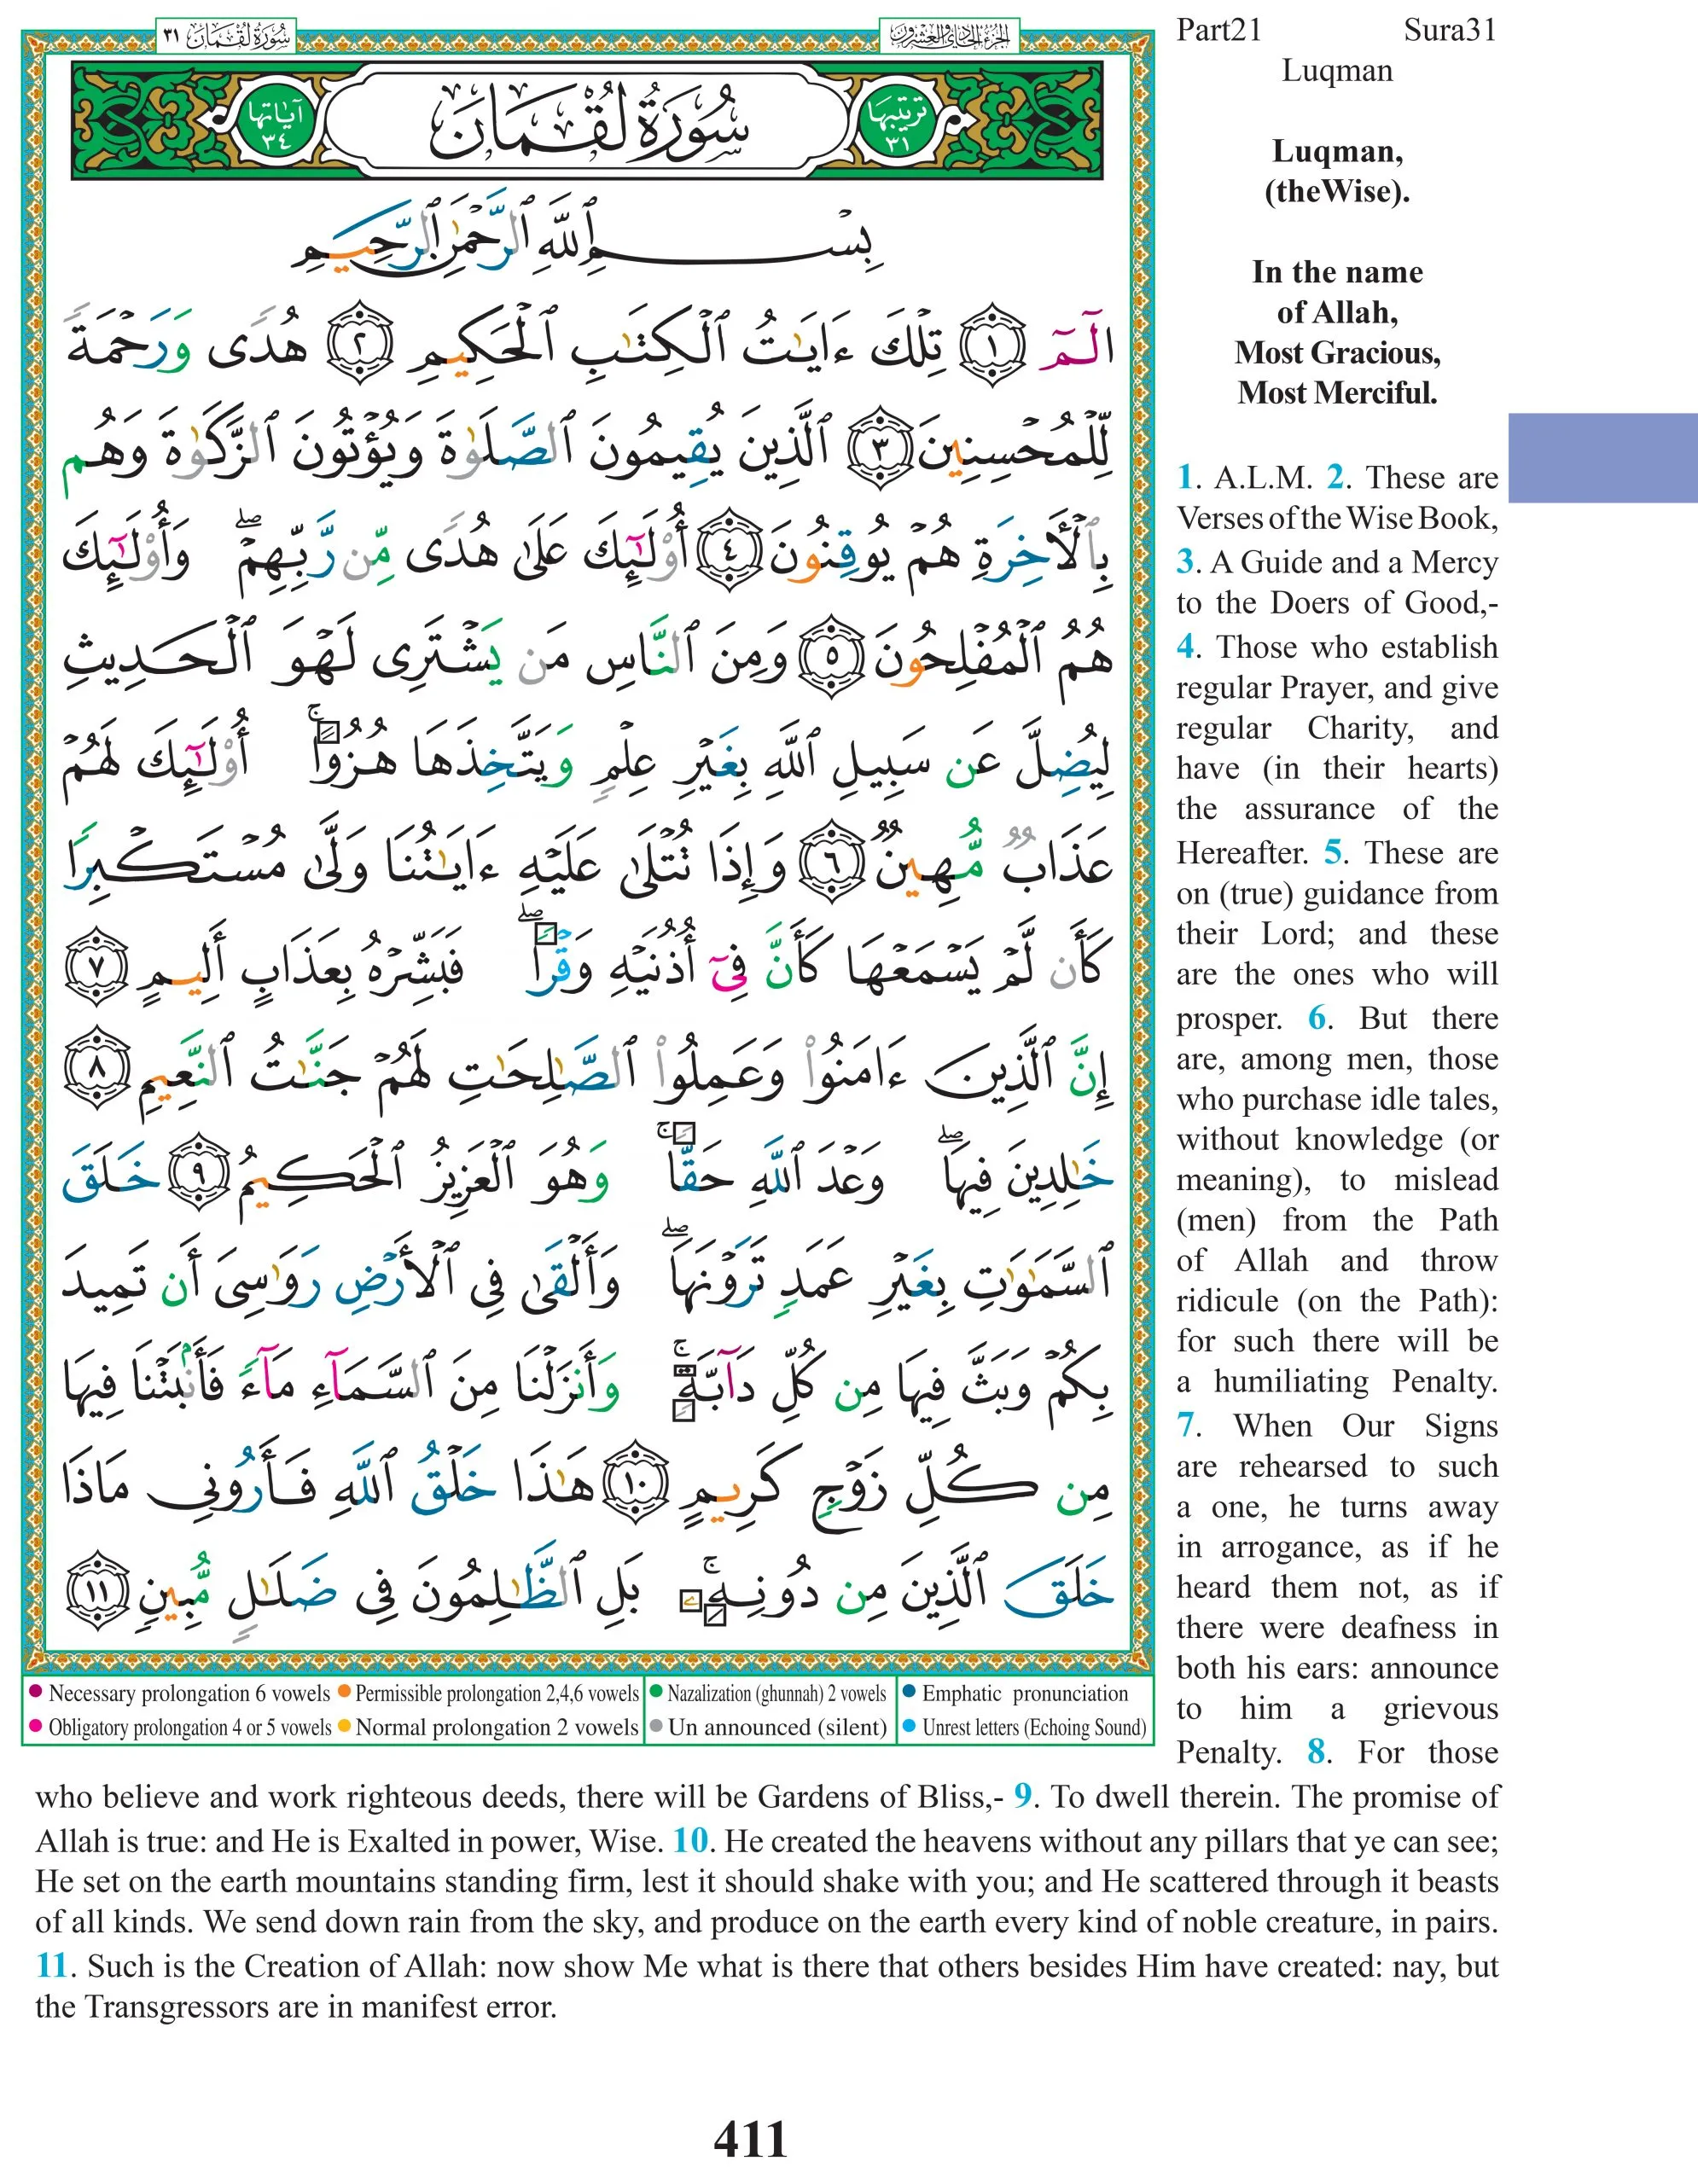 سُورَةُ لُقْمَانَ ٣١
الجُزْءُ الحَادِي وَالعِشْرُون
Part21 Sura31
Luqman
آيَاتُهَا ٣٤
سُورَةُ لُقْمَانَ
تَرْتِيبُهَا ٣١
بِسْمِ ٱللَّهِ ٱلرَّحْمَٰنِ ٱلرَّحِيمِ
الٓمٓ ١ تِلْكَ ءَايَٰتُ ٱلْكِتَٰبِ ٱلْحَكِيمِ ٢ هُدًى وَرَحْمَةً
لِّلْمُحْسِنِينَ ٣ ٱلَّذِينَ يُقِيمُونَ ٱلصَّلَوٰةَ وَيُؤْتُونَ ٱلزَّكَوٰةَ وَهُم
بِٱلْأَخِرَةِ هُمْ يُوقِنُونَ ٤ أُوْلَٰٓئِكَ عَلَىٰ هُدًى مِّن رَّبِّهِمْ ۖ وَأُوْلَٰٓئِكَ
هُمُ ٱلْمُفْلِحُونَ ٥ وَمِنَ ٱلنَّاسِ مَن يَشْتَرِى لَهْوَ ٱلْحَدِيثِ
لِيُضِلَّ عَن سَبِيلِ ٱللَّهِ بِغَيْرِ عِلْمٍ وَيَتَّخِذَهَا هُزُوًا ۚ أُوْلَٰٓئِكَ لَهُمْ
عَذَابٌ مُّهِينٌ ٦ وَإِذَا تُتْلَىٰ عَلَيْهِ ءَايَٰتُنَا وَلَّىٰ مُسْتَكْبِرًا
كَأَن لَّمْ يَسْمَعْهَا كَأَنَّ فِىٓ أُذُنَيْهِ وَقْرًا ۖ فَبَشِّرْهُ بِعَذَابٍ أَلِيمٍ ٧
إِنَّ ٱلَّذِينَ ءَامَنُوا۟ وَعَمِلُوا۟ ٱلصَّٰلِحَٰتِ لَهُمْ جَنَّٰتُ ٱلنَّعِيمِ ٨
خَٰلِدِينَ فِيهَا ۖ وَعْدَ ٱللَّهِ حَقًّا ۚ وَهُوَ ٱلْعَزِيزُ ٱلْحَكِيمُ ٩ خَلَقَ
ٱلسَّمَٰوَٰتِ بِغَيْرِ عَمَدٍ تَرَوْنَهَا ۖ وَأَلْقَىٰ فِى ٱلْأَرْضِ رَوَٰسِىَ أَن تَمِيدَ
بِكُمْ وَبَثَّ فِيهَا مِن كُلِّ دَآبَّةٍ ۚ وَأَنزَلْنَا مِنَ ٱلسَّمَآءِ مَآءً فَأَنۢبَتْنَا فِيهَا
مِن كُلِّ زَوْجٍ كَرِيمٍ ١٠ هَٰذَا خَلْقُ ٱللَّهِ فَأَرُونِى مَاذَا
خَلَقَ ٱلَّذِينَ مِن دُونِهِۦ ۚ بَلِ ٱلظَّٰلِمُونَ فِى ضَلَٰلٍ مُّبِينٍ ١١
Necessary prolongation 6 vowels Permissible prolongation 2,4,6 vowels Nazalization (ghunnah) 2 vowels Emphatic pronunciation
Obligatory prolongation 4 or 5 vowels Normal prolongation 2 vowels Un announced (silent) Unrest letters (Echoing Sound)
Luqman,
(theWise).
In the name
of Allah,
Most Gracious,
Most Merciful.
1. A.L.M. 2. These are
Verses of the Wise Book,
3. A Guide and a Mercy
to the Doers of Good,-
4. Those who establish
regular Prayer, and give
regular Charity, and
have (in their hearts)
the assurance of the
Hereafter. 5. These are
on (true) guidance from
their Lord; and these
are the ones who will
prosper. 6. But there
are, among men, those
who purchase idle tales,
without knowledge (or
meaning), to mislead
(men) from the Path
of Allah and throw
ridicule (on the Path):
for such there will be
a humiliating Penalty.
7. When Our Signs
are rehearsed to such
a one, he turns away
in arrogance, as if he
heard them not, as if
there were deafness in
both his ears: announce
to him a grievous
Penalty. 8. For those
who believe and work righteous deeds, there will be Gardens of Bliss,- 9. To dwell therein. The promise of
Allah is true: and He is Exalted in power, Wise. 10. He created the heavens without any pillars that ye can see;
He set on the earth mountains standing firm, lest it should shake with you; and He scattered through it beasts
of all kinds. We send down rain from the sky, and produce on the earth every kind of noble creature, in pairs.
11. Such is the Creation of Allah: now show Me what is there that others besides Him have created: nay, but
the Transgressors are in manifest error.
411